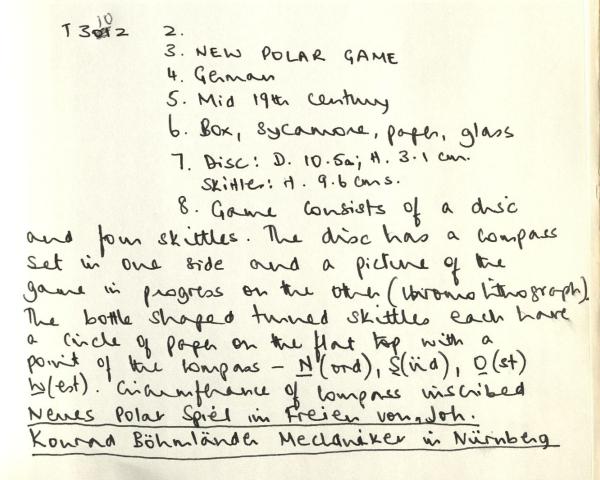 T 3012 2.
10
3. NEW POLAR GAME
4. German
5. Mid 19th century
6. Box, sycamore, paper, glass
7. Disc: D. 10.5a; H. 3.1 cm.
Skittles: H. 9.6 cms.
8. Game consists of a disc
and four skittles. The disc has a compass
set in one side and a picture of the
game in progress on the other (chromolithograph).
The bottle shaped turned skittles each have
a circle of paper on the flat top with a
point of the compass – N(ord), S(üd), O(st)
W(est). Circumference of compass inscribed
Neues Polar Spiel im Freien von Joh.
Konrad Böhmländer Mechaniker in Nürnberg